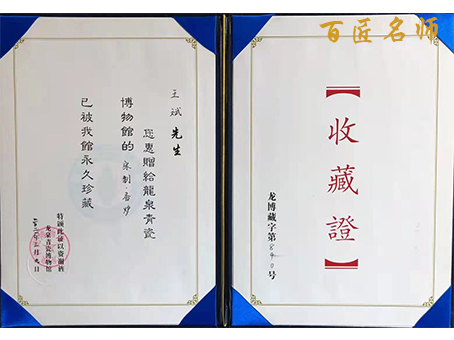 百匠名师
王斌 先生
您惠贈給龍泉青瓷
博物館的
已被我館永久珍藏
特頒此証以資谢
龙泉青瓷博物馆
【收藏證】
龙博藏字第 号